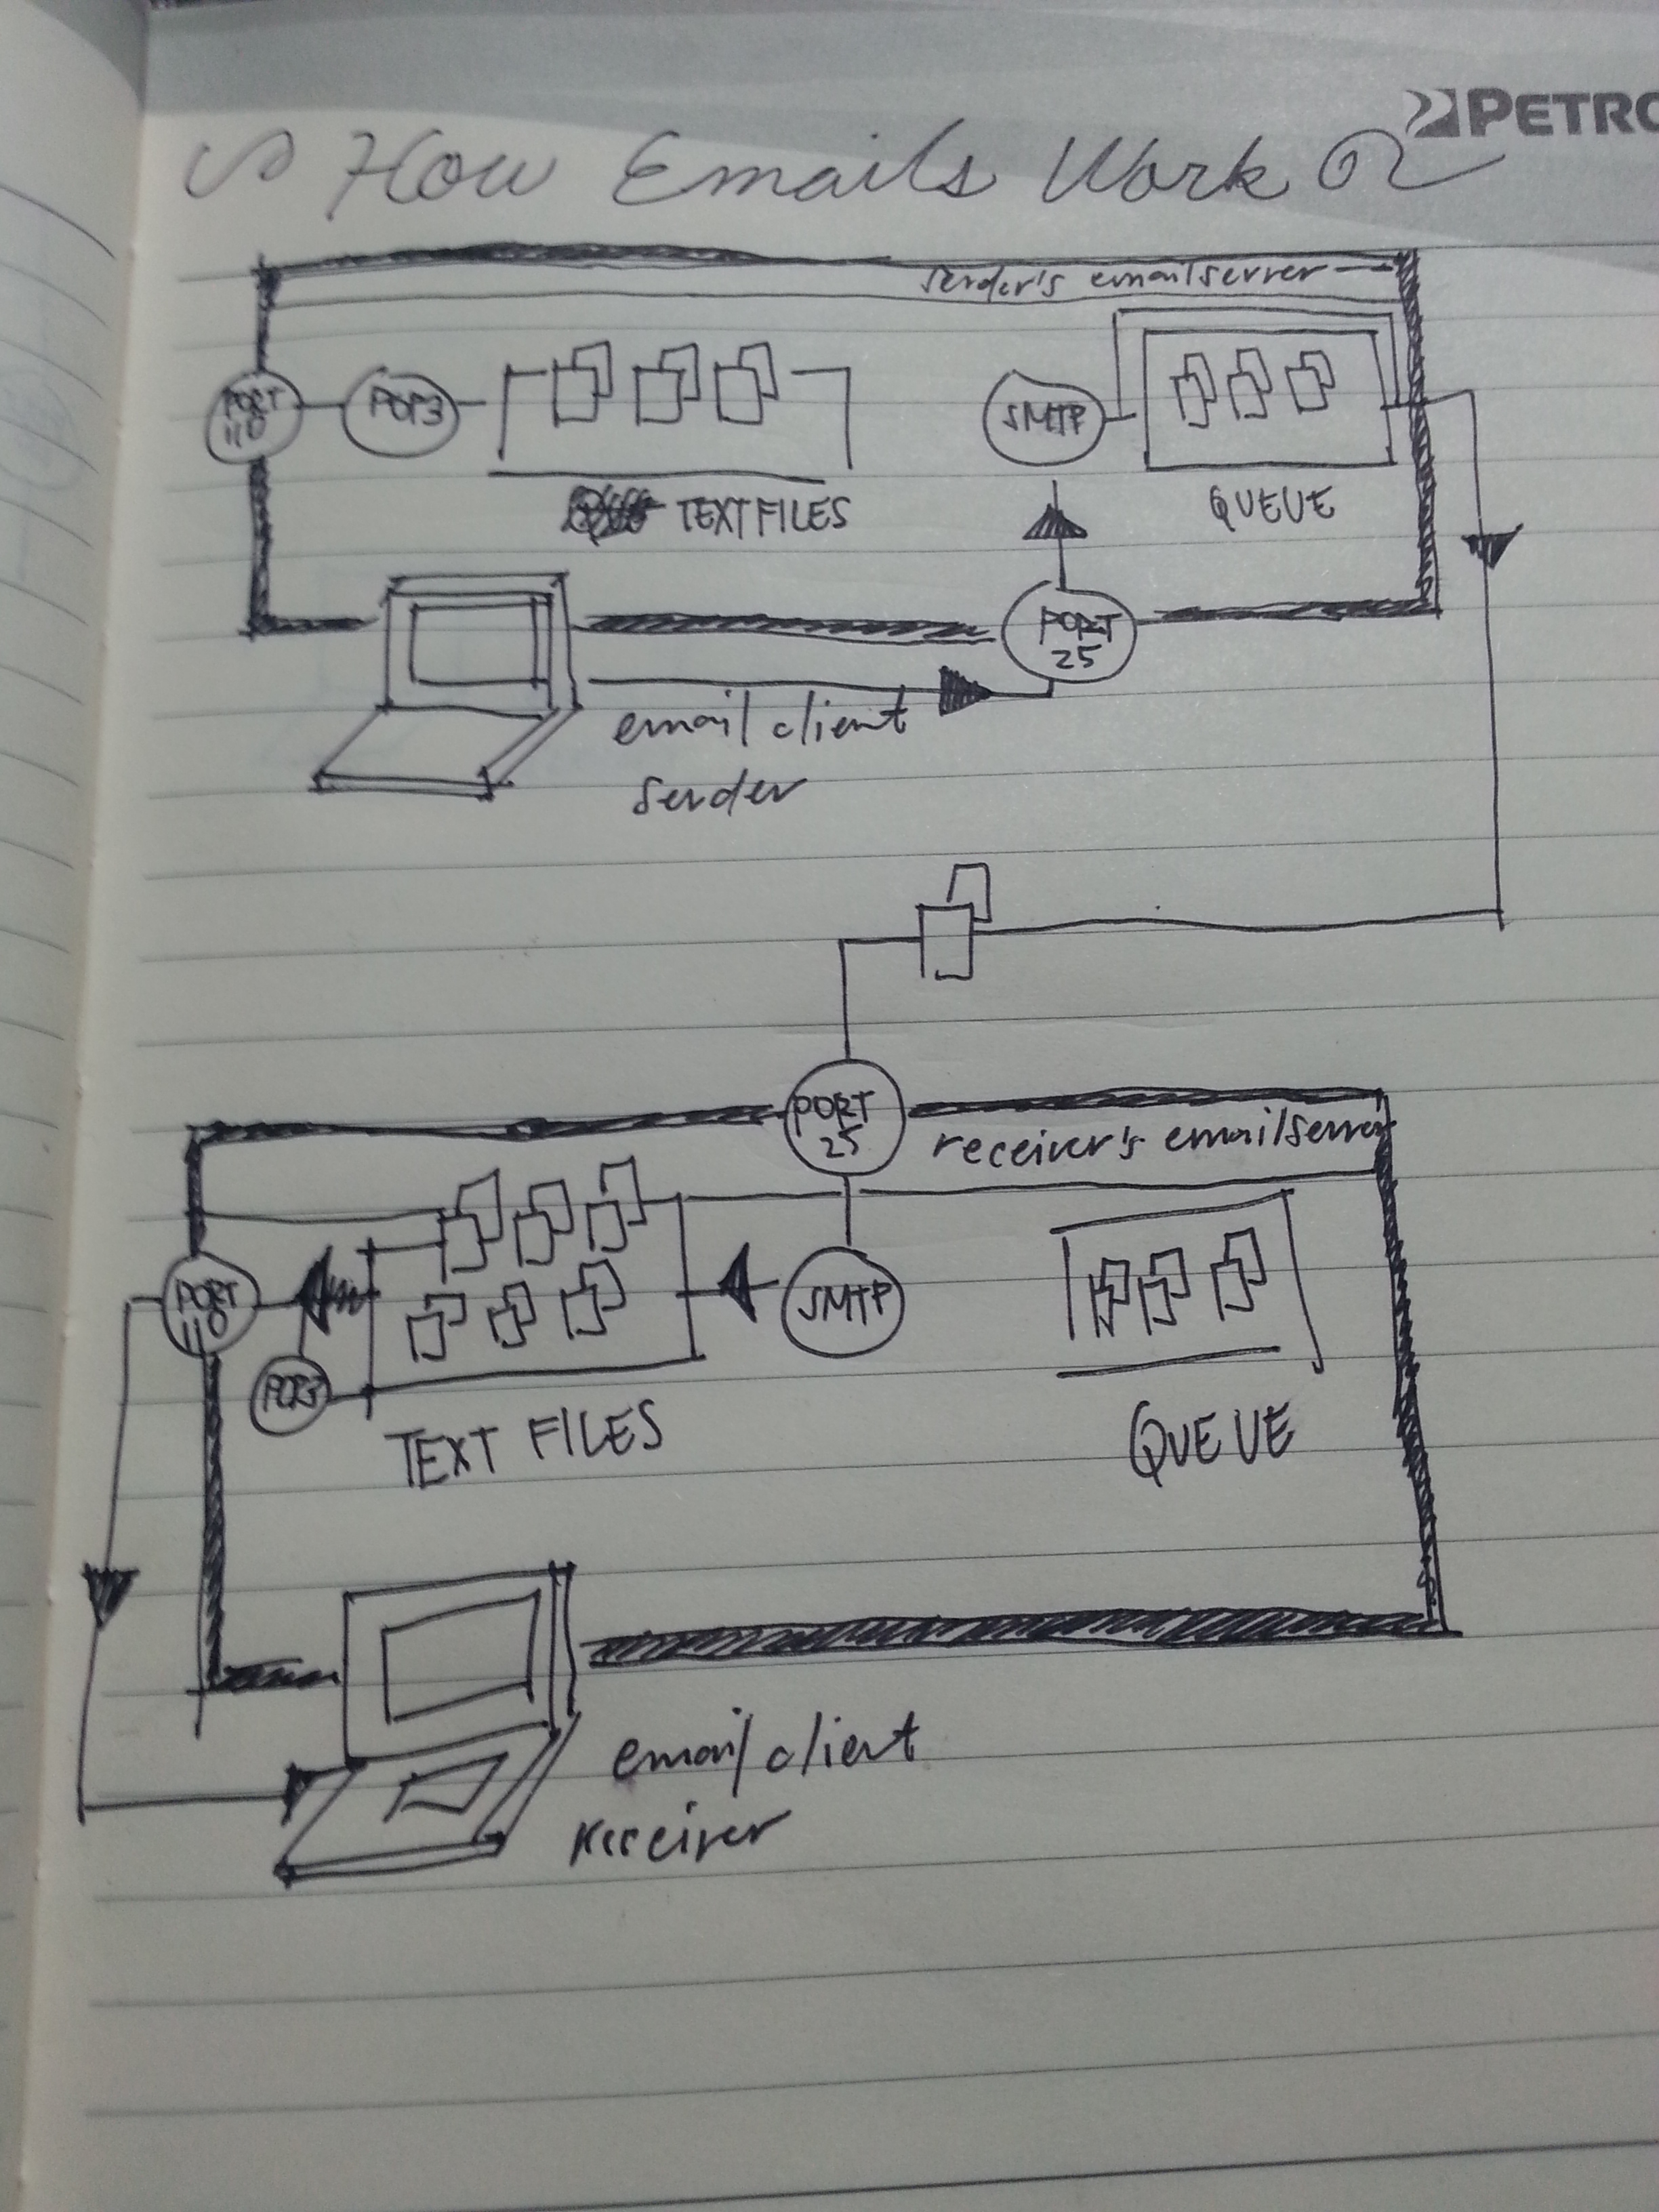 PETRO
How Emails Work
sender's email server
PORT
110
POP3
SMTP
TEXT FILES
QUEUE
PORT
25
email client
sender
PORT
25
receiver's email server
PORT
110
SMTP
POP3
TEXT FILES
QUEUE
email client
receiver